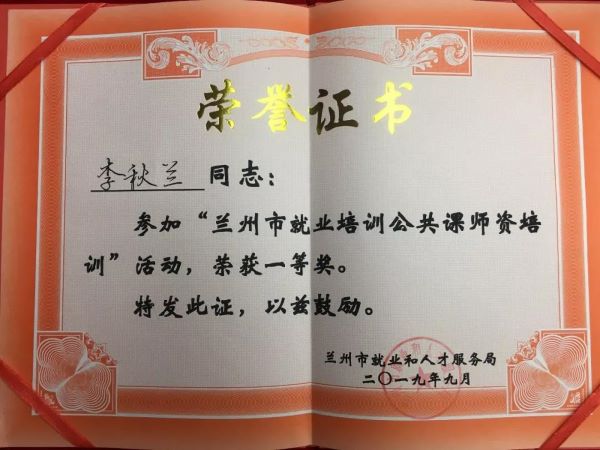 荣誉证书
李秋兰 同志：
参加“兰州市就业培训公共课师资培
训”活动，荣获一等奖。
特发此证，以兹鼓励。
兰州市就业和人才服务局
二〇一九年九月